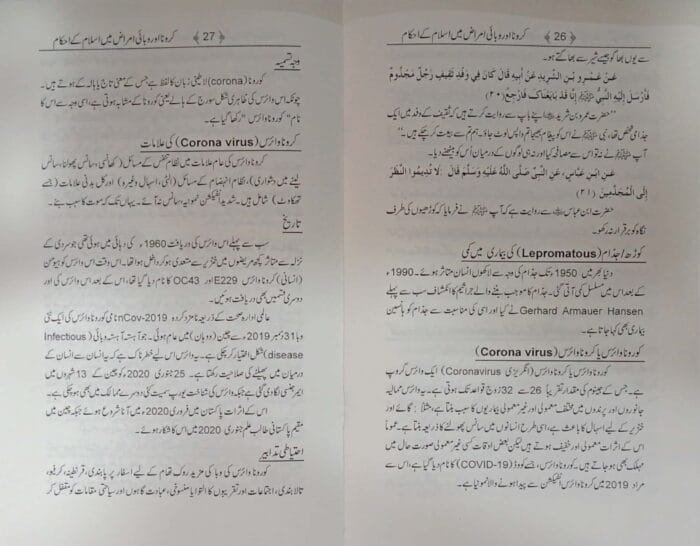 ﴿26﴾ کرونا اور وبائی امراض میں اسلام کے احکام
سے یوں بھاگو جیسے شیر سے بھاگتے ہو۔
عَنْ عَمْرِو بْنِ الشَّرِيدِ عَنْ أَبِيهِ قَالَ كَانَ فِي وَفْدِ ثَقِيفٍ رَجُلٌ مَجْذُومٌ
فَأَرْسَلَ إِلَيْهِ النَّبِيُّ ﷺ إِنَّا قَدْ بَايَعْنَاكَ فَارْجِعْ (٢٠)
’’حضرت عمرو بن شرید اپنے باپ سے روایت کرتے ہیں کہ ثقیف کے وفد میں ایک
جذامی شخص تھا، نبی ﷺ نے اس کو پیغام بھیجا تم واپس لوٹ جاؤ، ہم تم سے بیعت کر چکے ہیں۔‘‘
آپ ﷺ نے نہ تو اس سے مصافحہ کیا اور نہ ہی لوگوں کے درمیان اس کو بیٹھنے دیا۔
عَنِ ابْنِ عَبَّاسٍ، عَنِ النَّبِيِّ صَلَّى اللَّهُ عَلَيْهِ وَسَلَّمَ قَالَ لَا تُدِيمُوا النَّظَرَ
إِلَى الْمَجْذُمِينَ (٢١)
حضرت ابن عباس سے روایت ہے کہ آپ ﷺ نے فرمایا کہ کوڑھیوں کی طرف
نگاہ کو برقرار نہ رکھو۔
کوڑھ/جذام (Lepromatous) کی بیماری میں کمی
دنیا بھر میں 1950ء تک جذام کی وجہ سے لاکھوں انسان متاثر ہوئے۔ 1990ء
کے بعد اس میں مسلسل کمی آتی گئی۔ جذام کا موجب بننے والے جراثیم کا انکشاف سب سے پہلے
Gerhard Armauer Hansen نے کیا اور اسی کی مناسبت سے جذام کو ہانسین
بیماری بھی کہا جاتا ہے۔
کورونا وائرس یا کرونا وائرس (Corona virus)
کورونا وائرس یا کرونا وائرس (انگریزی Coronavirus) ایک وائرس گروپ
ہے۔ جس کے جینوم کی مقدار تقریباً 26 سے 32 زوج قواعد تک ہوتی ہے۔ یہ وائرس ممالیہ
جانوروں اور پرندوں میں مختلف معمولی اور غیر معمولی بیماریوں کا سبب بنتا ہے، مثلاً: گائے اور
خنزیر کے لیے اسہال کا باعث ہے، اسی طرح انسانوں میں سانس پھولنے کا ذریعہ بنتا ہے۔ عموماً
اس کے اثرات معمولی اور خفیف ہوتے ہیں لیکن بعض اوقات کسی غیر معمولی صورت حال میں
مہلک بھی ہو جاتا ہے۔ کورونا وائرس، جسے کووڈ (COVID-19) کا نام دیا گیا ہے، اس سے
مراد 2019 میں کورونا وائرس انفیکشن سے پیدا ہونے والا نمونیا ہے۔
﴿27﴾ کرونا اور وبائی امراض میں اسلام کے احکام
وجہ تسمیہ
کورونا (corona) لاطینی زبان کا لفظ ہے جس کے معنی تاج یا ہالہ کے ہوتے ہیں۔
چونکہ اس وائرس کی ظاہری شکل سورج کے ہالے یعنی کورونا کے مشابہ ہوتی ہے، اسی وجہ سے اس کا
نام ’’کورونا وائرس‘‘ رکھا گیا ہے۔
کرونا وائرس (Corona virus) کی علامات
کرونا وائرس کی عام علامات میں نظام تنفس کے مسائل (کھانسی، سانس پھولنا، سانس
لینے میں دشواری)، نظام انہضام کے مسائل (الٹی، اسہال وغیرہ) اور کل بدنی علامات (جیسے
تھکاوٹ) شامل ہیں۔ شدید انفیکشن نمونیہ، سانس نہ آنے۔ یہاں تک کہ موت کا سبب بنے۔
تاریخ
سب سے پہلے اس وائرس کی دریافت 1960ء کی دہائی میں ہوئی تھی جو سردی کے
نزلہ سے متاثر کچھ مریضوں میں خنزیر سے متعدی ہو کر داخل ہوا تھا۔ اس وقت اس وائرس کو ہیومن
(انسانی) کرونا وائرس E229 اور OC43 کا نام دیا گیا تھا، اس کے بعد اس وائرس کی اور
دوسری قسمیں بھی دریافت ہوئیں۔
عالمی ادارہ صحت کے ذریعہ نامزد کردہ nCov-2019 نامی کورونا وائرس کی ایک نئی
وبا 31 دسمبر 2019ء سے چین (ووہان) میں عام ہوئی۔ جو آہستہ آہستہ وبائی Infectious)
disease) شکل اختیار کر چکی ہے۔ یہ وائرس اس لیے خطرناک ہے کہ یہ انسان سے انسان کے
درمیان میں پھیلنے کی صلاحیت رکھتا ہے۔ 25 جنوری 2020ء کو چین کے 13 شہروں میں
ایمرجنسی لگا دی گئی ہے جبکہ وائرس کی شناخت یورپ سمیت کئی دوسرے ممالک میں بھی ہو چکی ہے۔
اس کے اثرات پاکستان میں فروری 2020ء میں آنا شروع ہوئے جبکہ چین میں
مقیم پاکستانی طالب علم جنوری 2020 میں اس کا شکار ہوئے۔
احتیاطی تدابیر
کورونا وائرس کی وبا کی مزید روک تھام کے لیے اسفار پر پابندی، قرنطینہ، کرفیو،
تالا بندی، اجتماعات اور تقریبوں کا التوا یا منسوخی، عبادت گاہوں اور سیاحتی مقامات کو مقفل کر